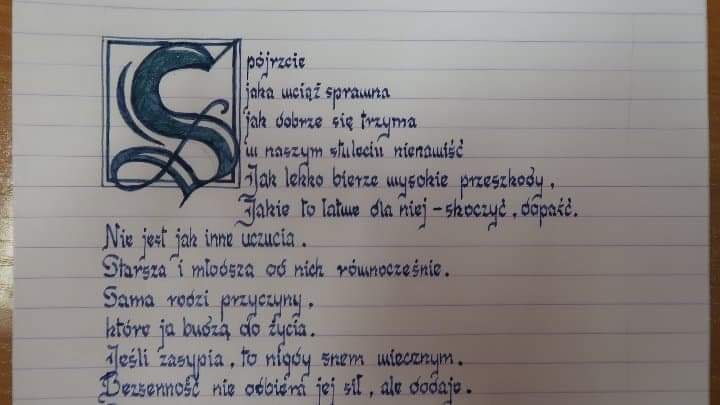 Spójrzcie
jaka wciąż sprawna
jak dobrze się trzyma
w naszym stuleciu nienawiść
Jak lekko bierze wysokie przeszkody,
Jakie to łatwe dla niej - skoczyć, dopaść.
Nie jest jak inne uczucia.
Starsza i młodsza od nich równocześnie.
Sama rodzi przyczyny,
które ja budzą do życia.
Jeśli zasypia, to nigdy snem wiecznym.
Bezsenność nie odbiera jej sił, ale dodaje.